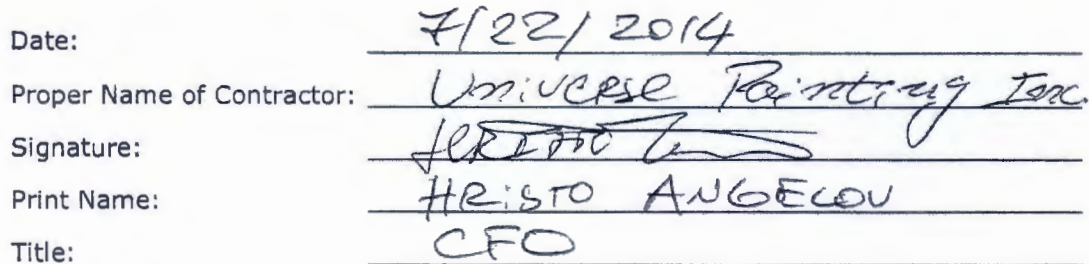 Date: 7/22/2014
Proper Name of Contractor: Universe Painting Inc.
Signature: Hristo
Print Name: HRiSTO ANGELOV
Title: CFO